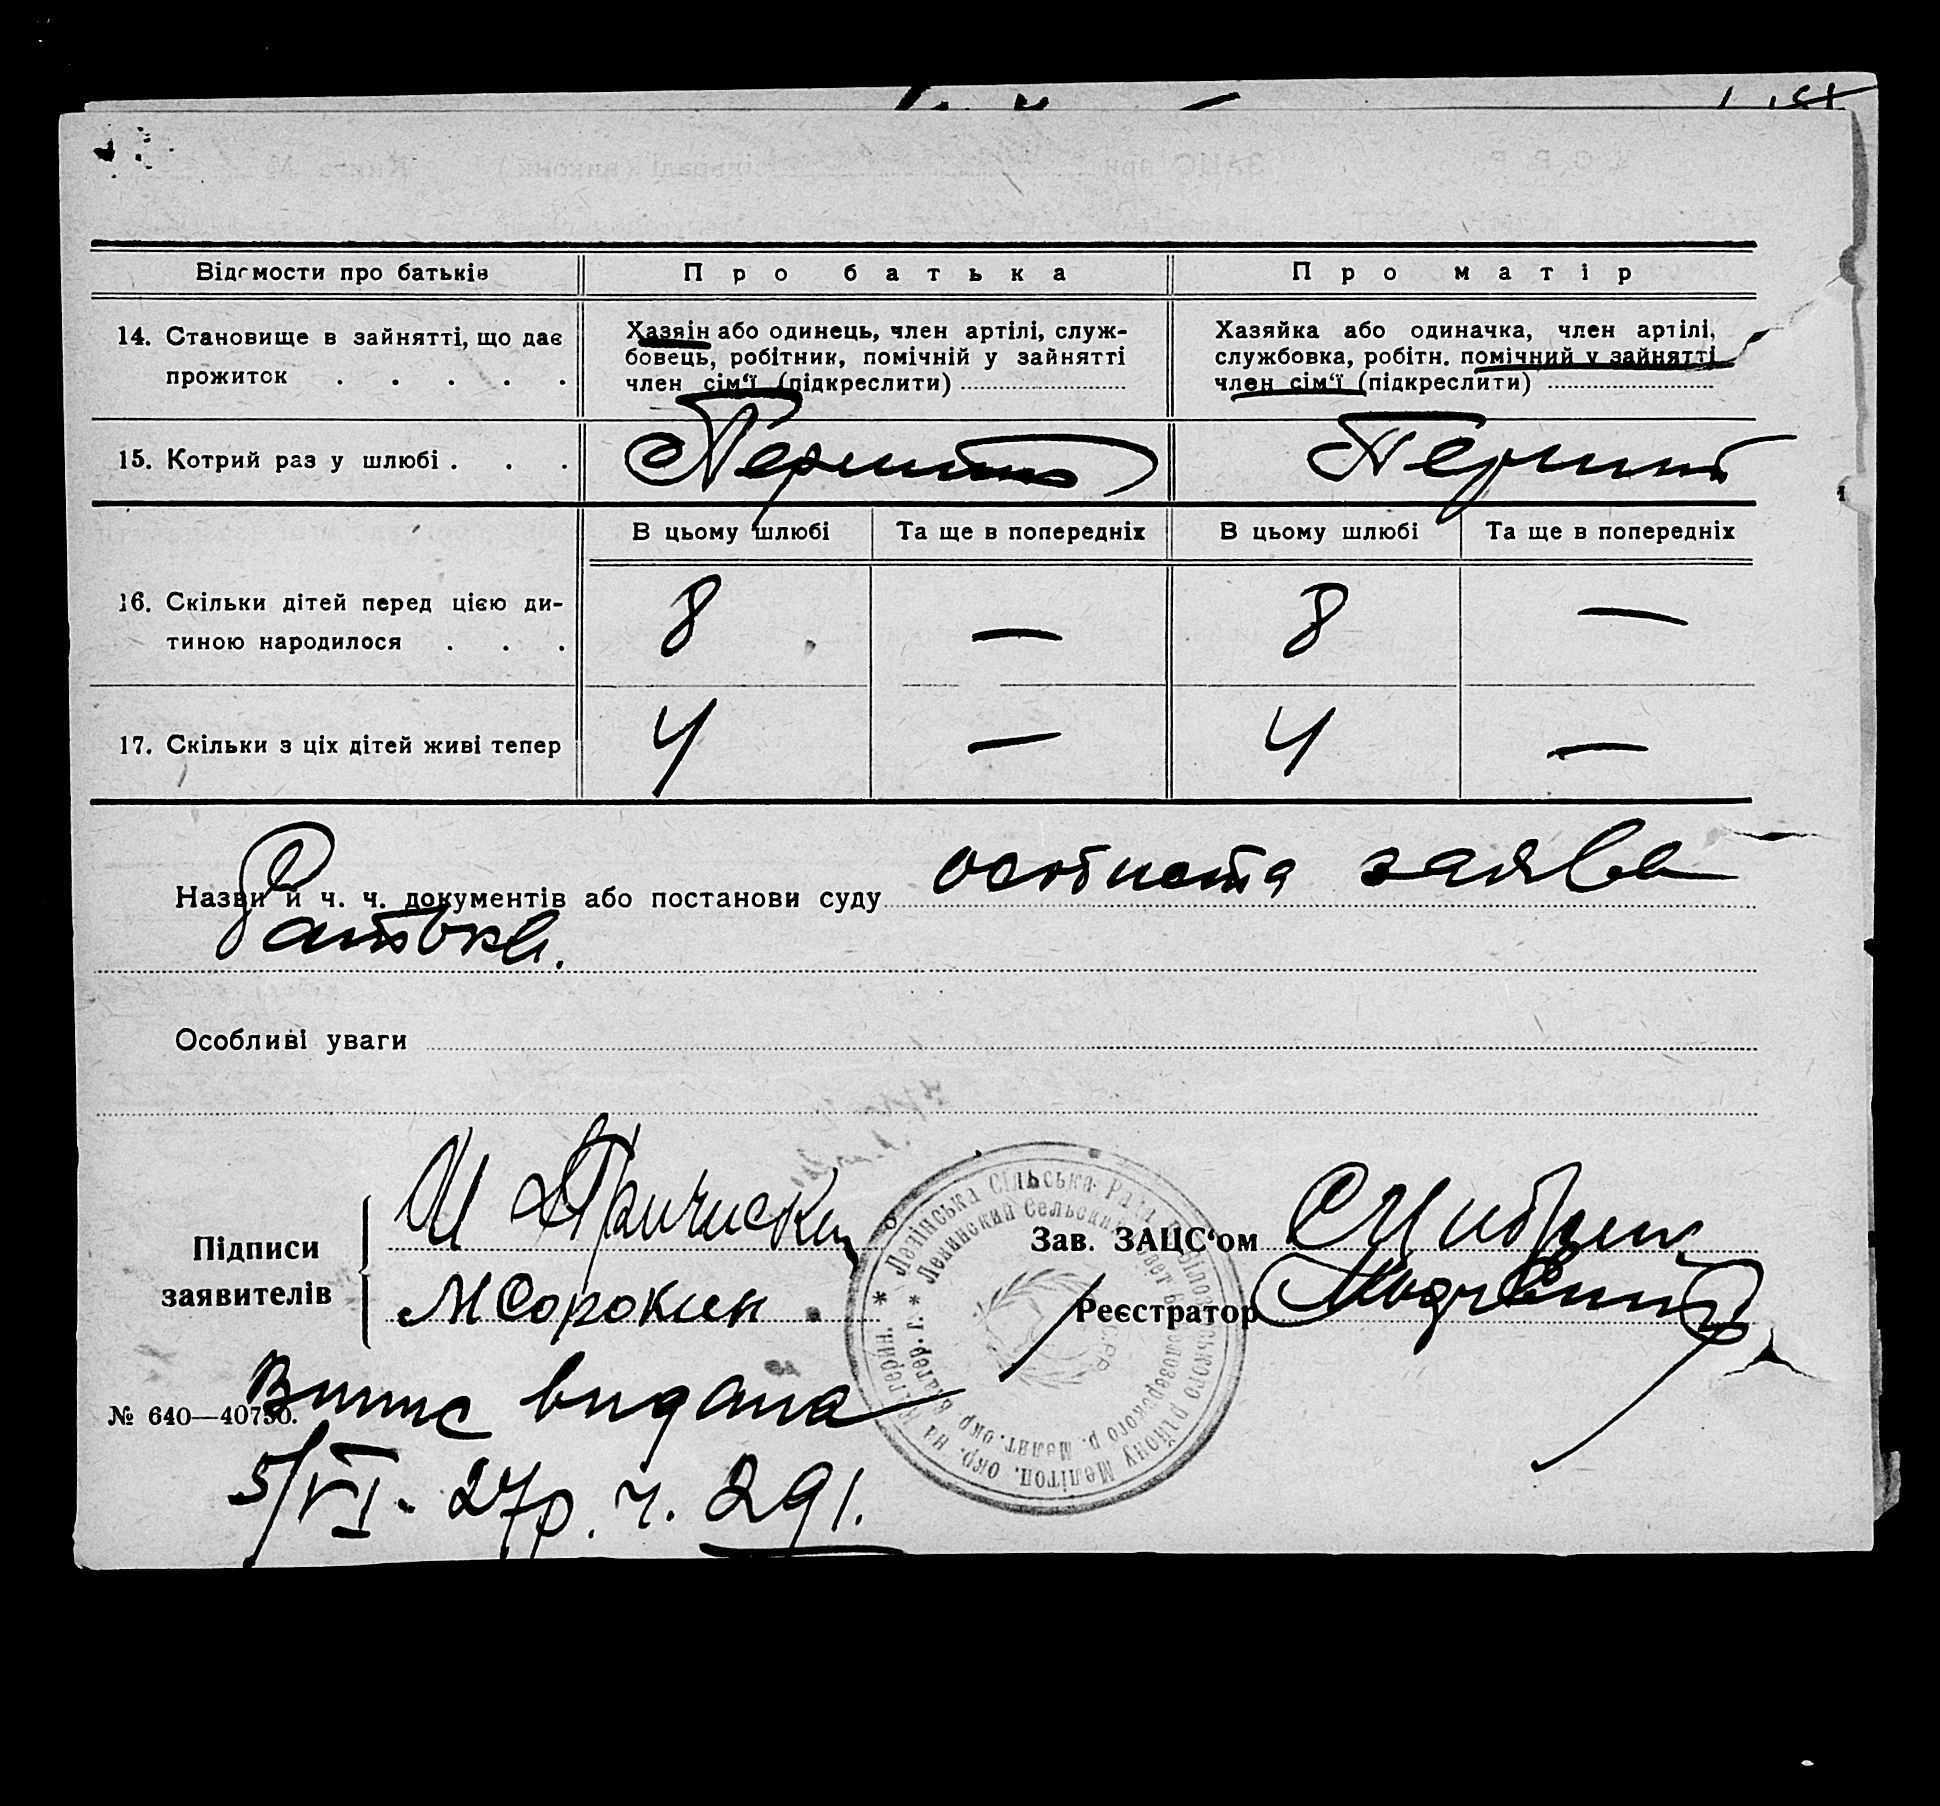 Відомости про батьків
Про батька
Про матір
14. Становище в зайнятті, що дає
прожиток . . . . .
Хазяін або одинець, член артілі, служ-
бовець, робітник, помічній у зайнятті
член сім'ї (підкреслити)
Хазяйка або одиначка, член артілі,
службовка, робітн. помічний у зайнятті
член сім'ї (підкреслити)
15. Котрий раз у шлюбі . . .
Перший
В цьому шлюбі
Та ще в попередніх
В цьому шлюбі
Та ще в попередніх
16. Скільки дітей перед цією ди-
тиною народилося . . .
8
—
8
—
17. Скільки з ціх дітей живі тепер
4
—
4
—
Назви й ч. ч. документів або постанови суду особиста заява
батька.
Особливі уваги
Підписи
заявителів
М Сорокин
Зав. ЗАЦС'ом
Реєстратор
* Ленінська Сільська Рада Білозерського району Мелітоп. окр. на Катерин.
* Ленинский Сельский Совет Белозерского р. Мелит. окр. Екатер. г.
Випис видана
№ 640—40750.
5/VI - 27р. ч. 291.